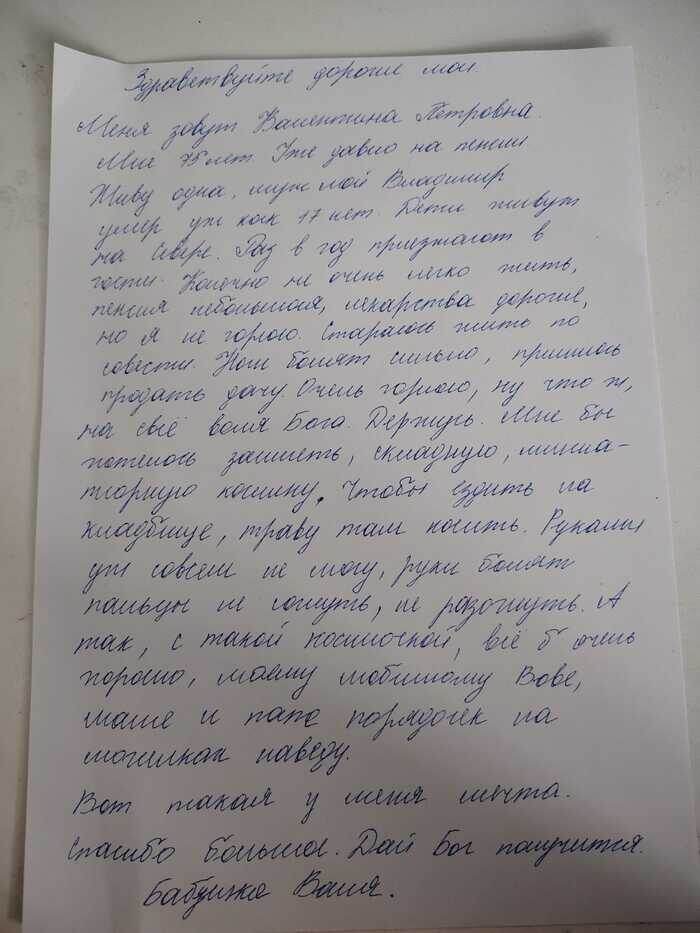 Здравствуйте дорогие мои.
Меня зовут Валентина Петровна.
Мне 75 лет. Уже давно на пенсии
Живу одна, муж мой Владимир
умер уж как 17 лет. Дети живут
на Севере. Раз в год приезжают в
гости. Конечно не очень легко жить,
пенсия небольшая, лекарства дорогие,
но я не горюю. Стараюсь жить по
совести. Ноги болят сильно, пришлось
продать дачу. Очень горюю, ну что ж,
на всё воля Бога. Держусь. Мне бы
хотелось заиметь, складную, миниа-
тюрную косилку. Чтобы ездить на
кладбище, траву там косить. Руками
уж совсем не могу, руки болят
пальцы не согнуть, не разогнуть. А
так, с такой косилочкой, всё б очень
хорошо, моему любимому Вове,
маме и папе порядочек на
могилках наведу.
Вот такая у меня мечта.
Спасибо большое. Дай Бог получится.
Бабушка Валя.